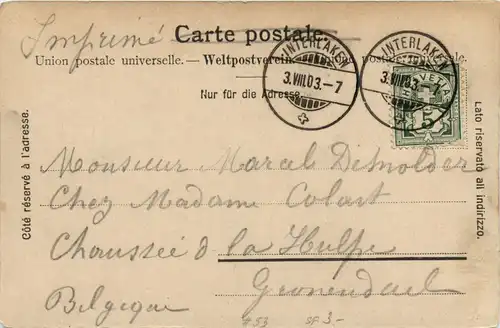 Carte postale.
Imprimé
Union postale universelle. — Weltpostverein. — postale
Nur für die Adresse
INTERLAKEN
3.VIII.03.–7
INTERLAKEN
3.VIII.03.–7
HELVETIA
5
Côté réservé à l'adresse.
Lato riservato all indirizzo.
Monsieur Marcel
Chez Madame Colart
Chaussée d la Hulpe
Groenendael
Belgique
753 SF 3.-